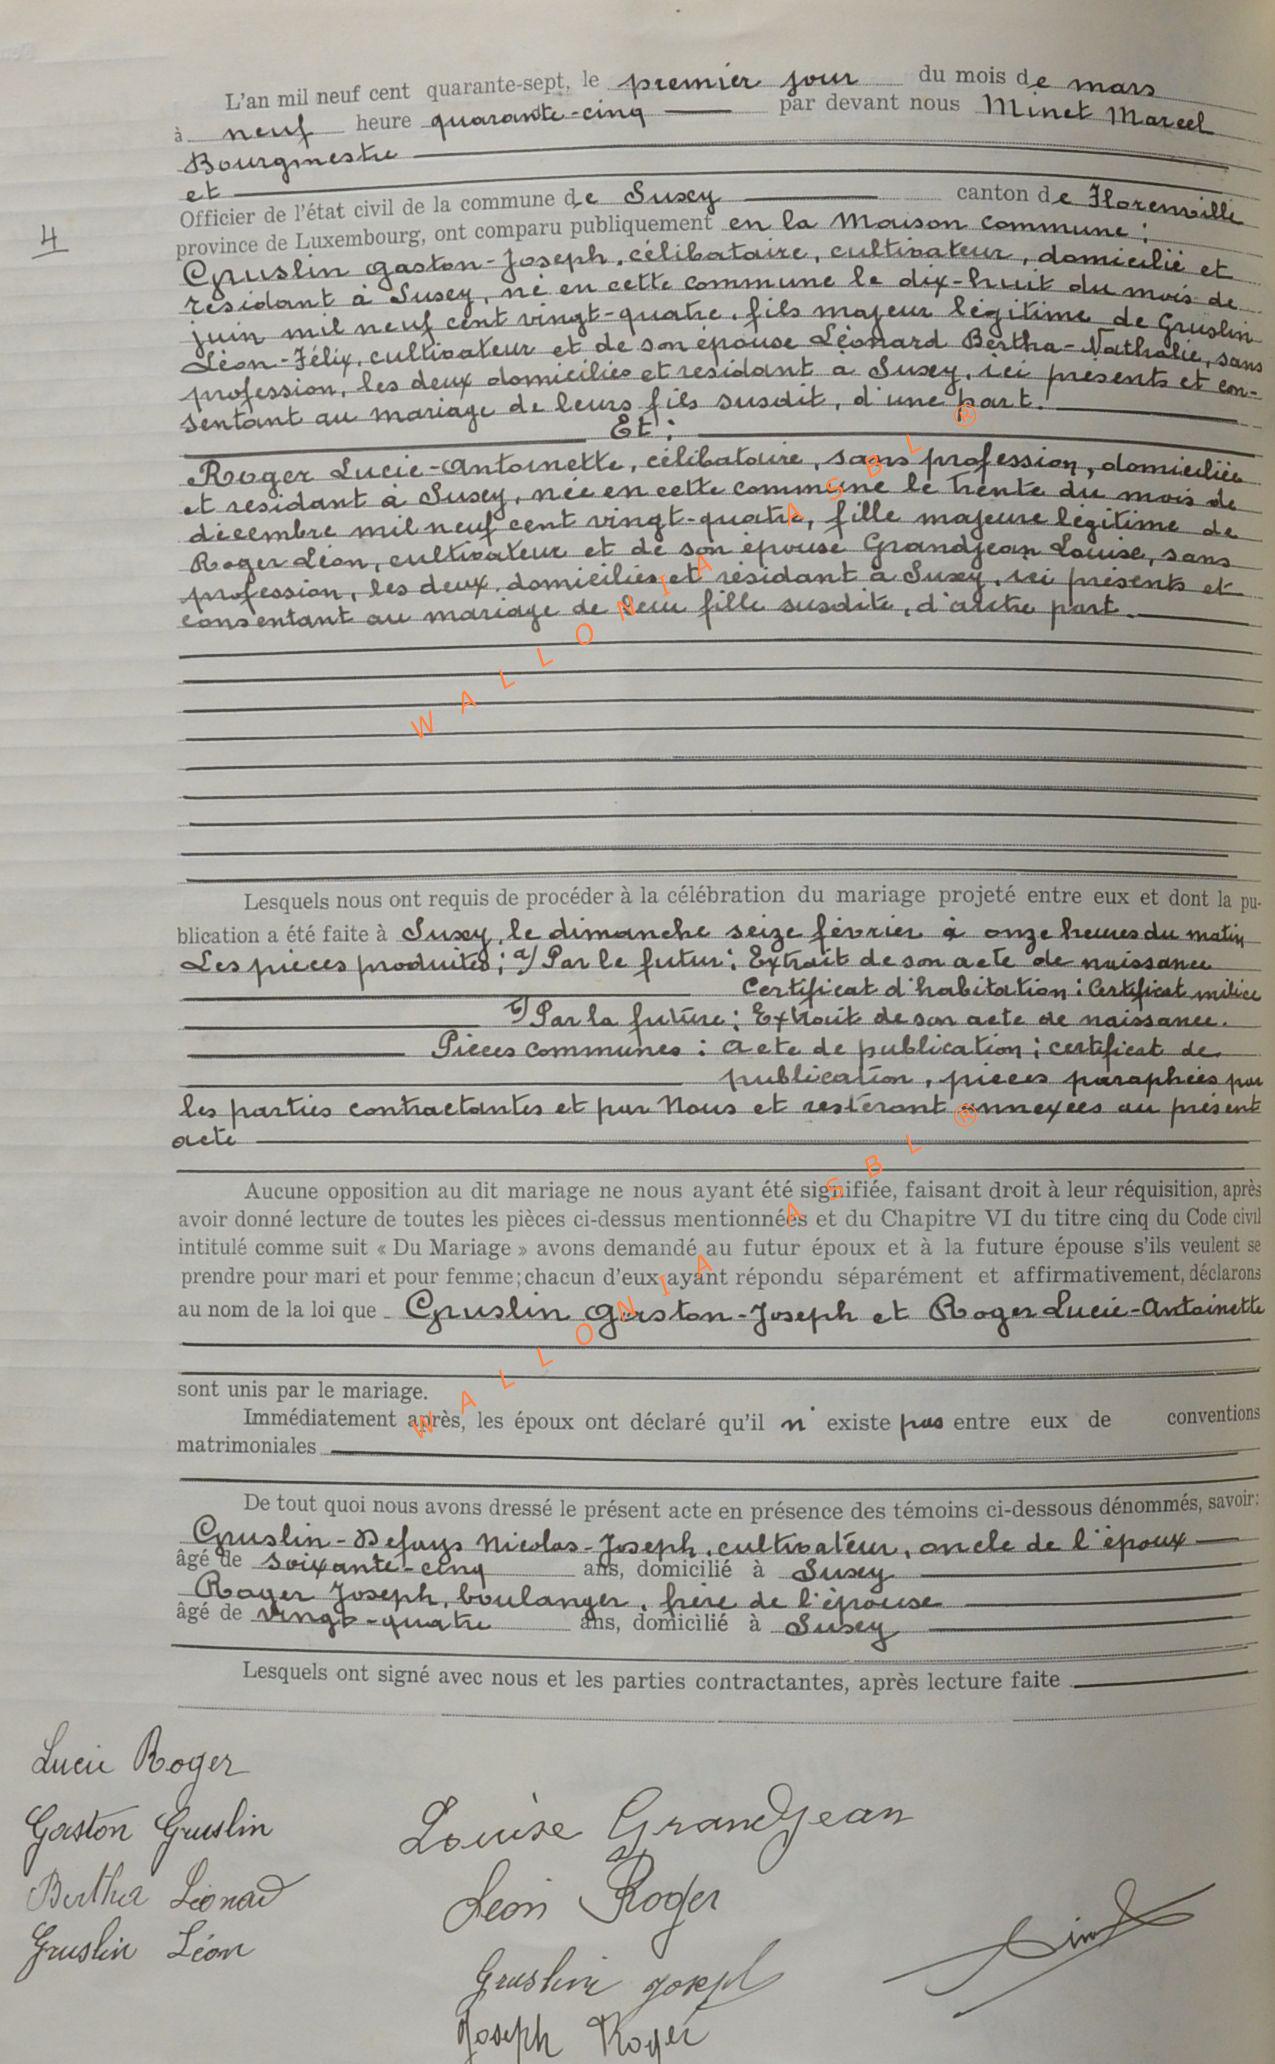 L'an mil neuf cent quarante-sept, le premier jour du mois de mars
à neuf heure quarante-cinq par devant nous Minet Marcel
Bourgmestre
et
Officier de l'état civil de la commune de Suxy canton de Florenville
province de Luxembourg, ont comparu publiquement en la Maison commune :
4
Gruslin Gaston-Joseph, célibataire, cultivateur, domicilié et
résidant à Suxey, né en cette commune le dix-huit du mois de
juin mil neuf cent vingt-quatre, fils majeur légitime de Gruslin
Léon-Félix, cultivateur et de son épouse Léonard Bertha-Nathalie, sans
profession, les deux domiciliés et résidant à Suxey, ici présents et con-
sentant au mariage de leurs fils susdit, d'une part.
Et :
Roger Lucie-Antoinette, célibataire, sans profession, domiciliée
et résidant à Suxey, née en cette commune le trente du mois de
décembre mil neuf cent vingt-quatre, fille majeure légitime de
Roger Léon, cultivateur et de son épouse Grandjean Louise, sans
profession, les deux domiciliés et résidant à Suxy, ici présents et
consentant au mariage de leur fille susdite, d'autre part.
WALLONIA ASBL ®
Lesquels nous ont requis de procéder à la célébration du mariage projeté entre eux et dont la pu-
blication a été faite à Suxey, le dimanche seize février à onze heures du matin
Les pièces produites ; a/ Par le futur : Extrait de son acte de naissance
Certificat d'habitation : Certificat milice
b/ Par la future : Extrait de son acte de naissance.
Pièces communes : acte de publication ; certificat de
publication, pièces paraphées par
les parties contractantes et par Nous et resteront annexées au présent
acte
Aucune opposition au dit mariage ne nous ayant été signifiée, faisant droit à leur réquisition, après
avoir donné lecture de toutes les pièces ci-dessus mentionnées et du Chapitre VI du titre cinq du Code civil
intitulé comme suit « Du Mariage » avons demandé au futur époux et à la future épouse s'ils veulent se
prendre pour mari et pour femme; chacun d'eux ayant répondu séparément et affirmativement, déclarons
au nom de la loi que Gruslin Gaston-Joseph et Roger Lucie-Antoinette
WALLONIA ASBL ®
sont unis par le mariage.
Immédiatement après, les époux ont déclaré qu'il n' existe pas entre eux de conventions
matrimoniales
De tout quoi nous avons dressé le présent acte en présence des témoins ci-dessous dénommés, savoir:
Gruslin-Defays Nicolas-Joseph, cultivateur, oncle de l'époux
âgé de soixante-cinq ans, domicilié à Suxey
Roger Joseph, boulanger, frère de l'épouse
âgé de vingt-quatre ans, domicilié à Suxey
Lesquels ont signé avec nous et les parties contractantes, après lecture faite
Lucie Roger
Gaston Gruslin
Bertha Léonard
Gruslin Léon
Louise Grandjean
Leon Roger
Gruslin Joseph
Joseph Roger